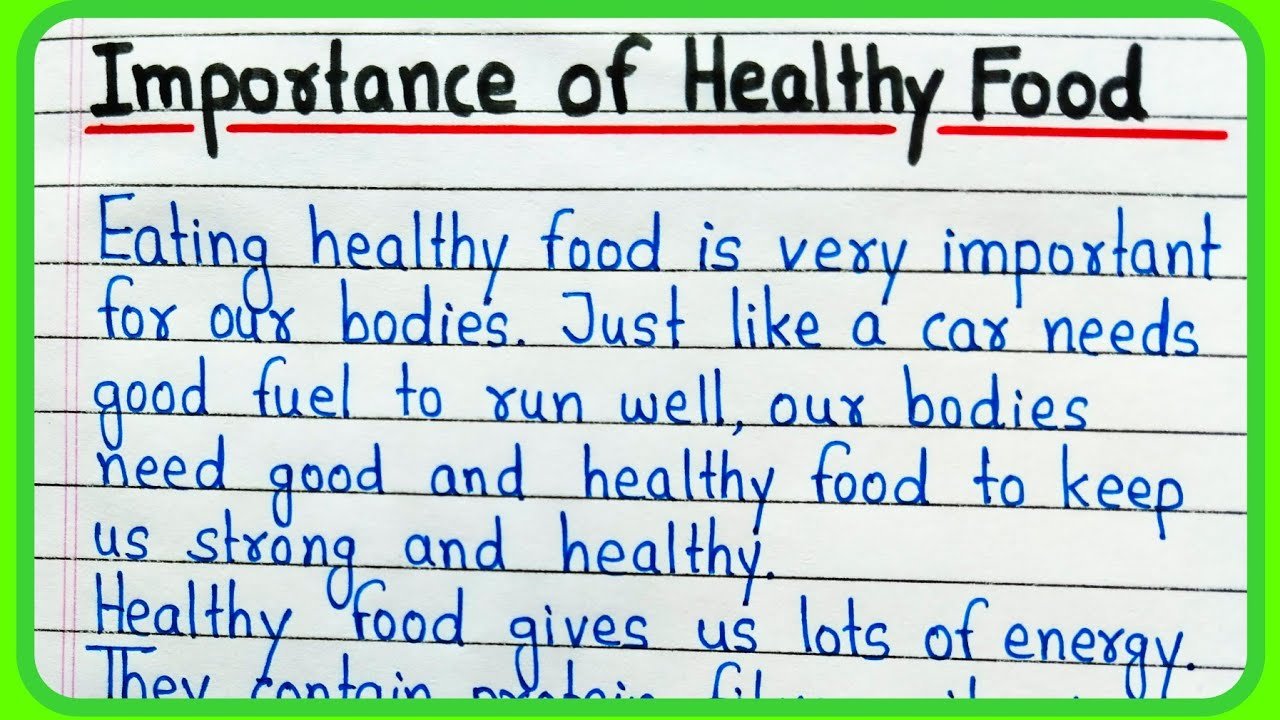 Importance of Healthy Food
Eating healthy food is very important
for our bodies. Just like a car needs
good fuel to run well, our bodies
need good and healthy food to keep
us strong and healthy.
Healthy food gives us lots of energy.
They contain protein